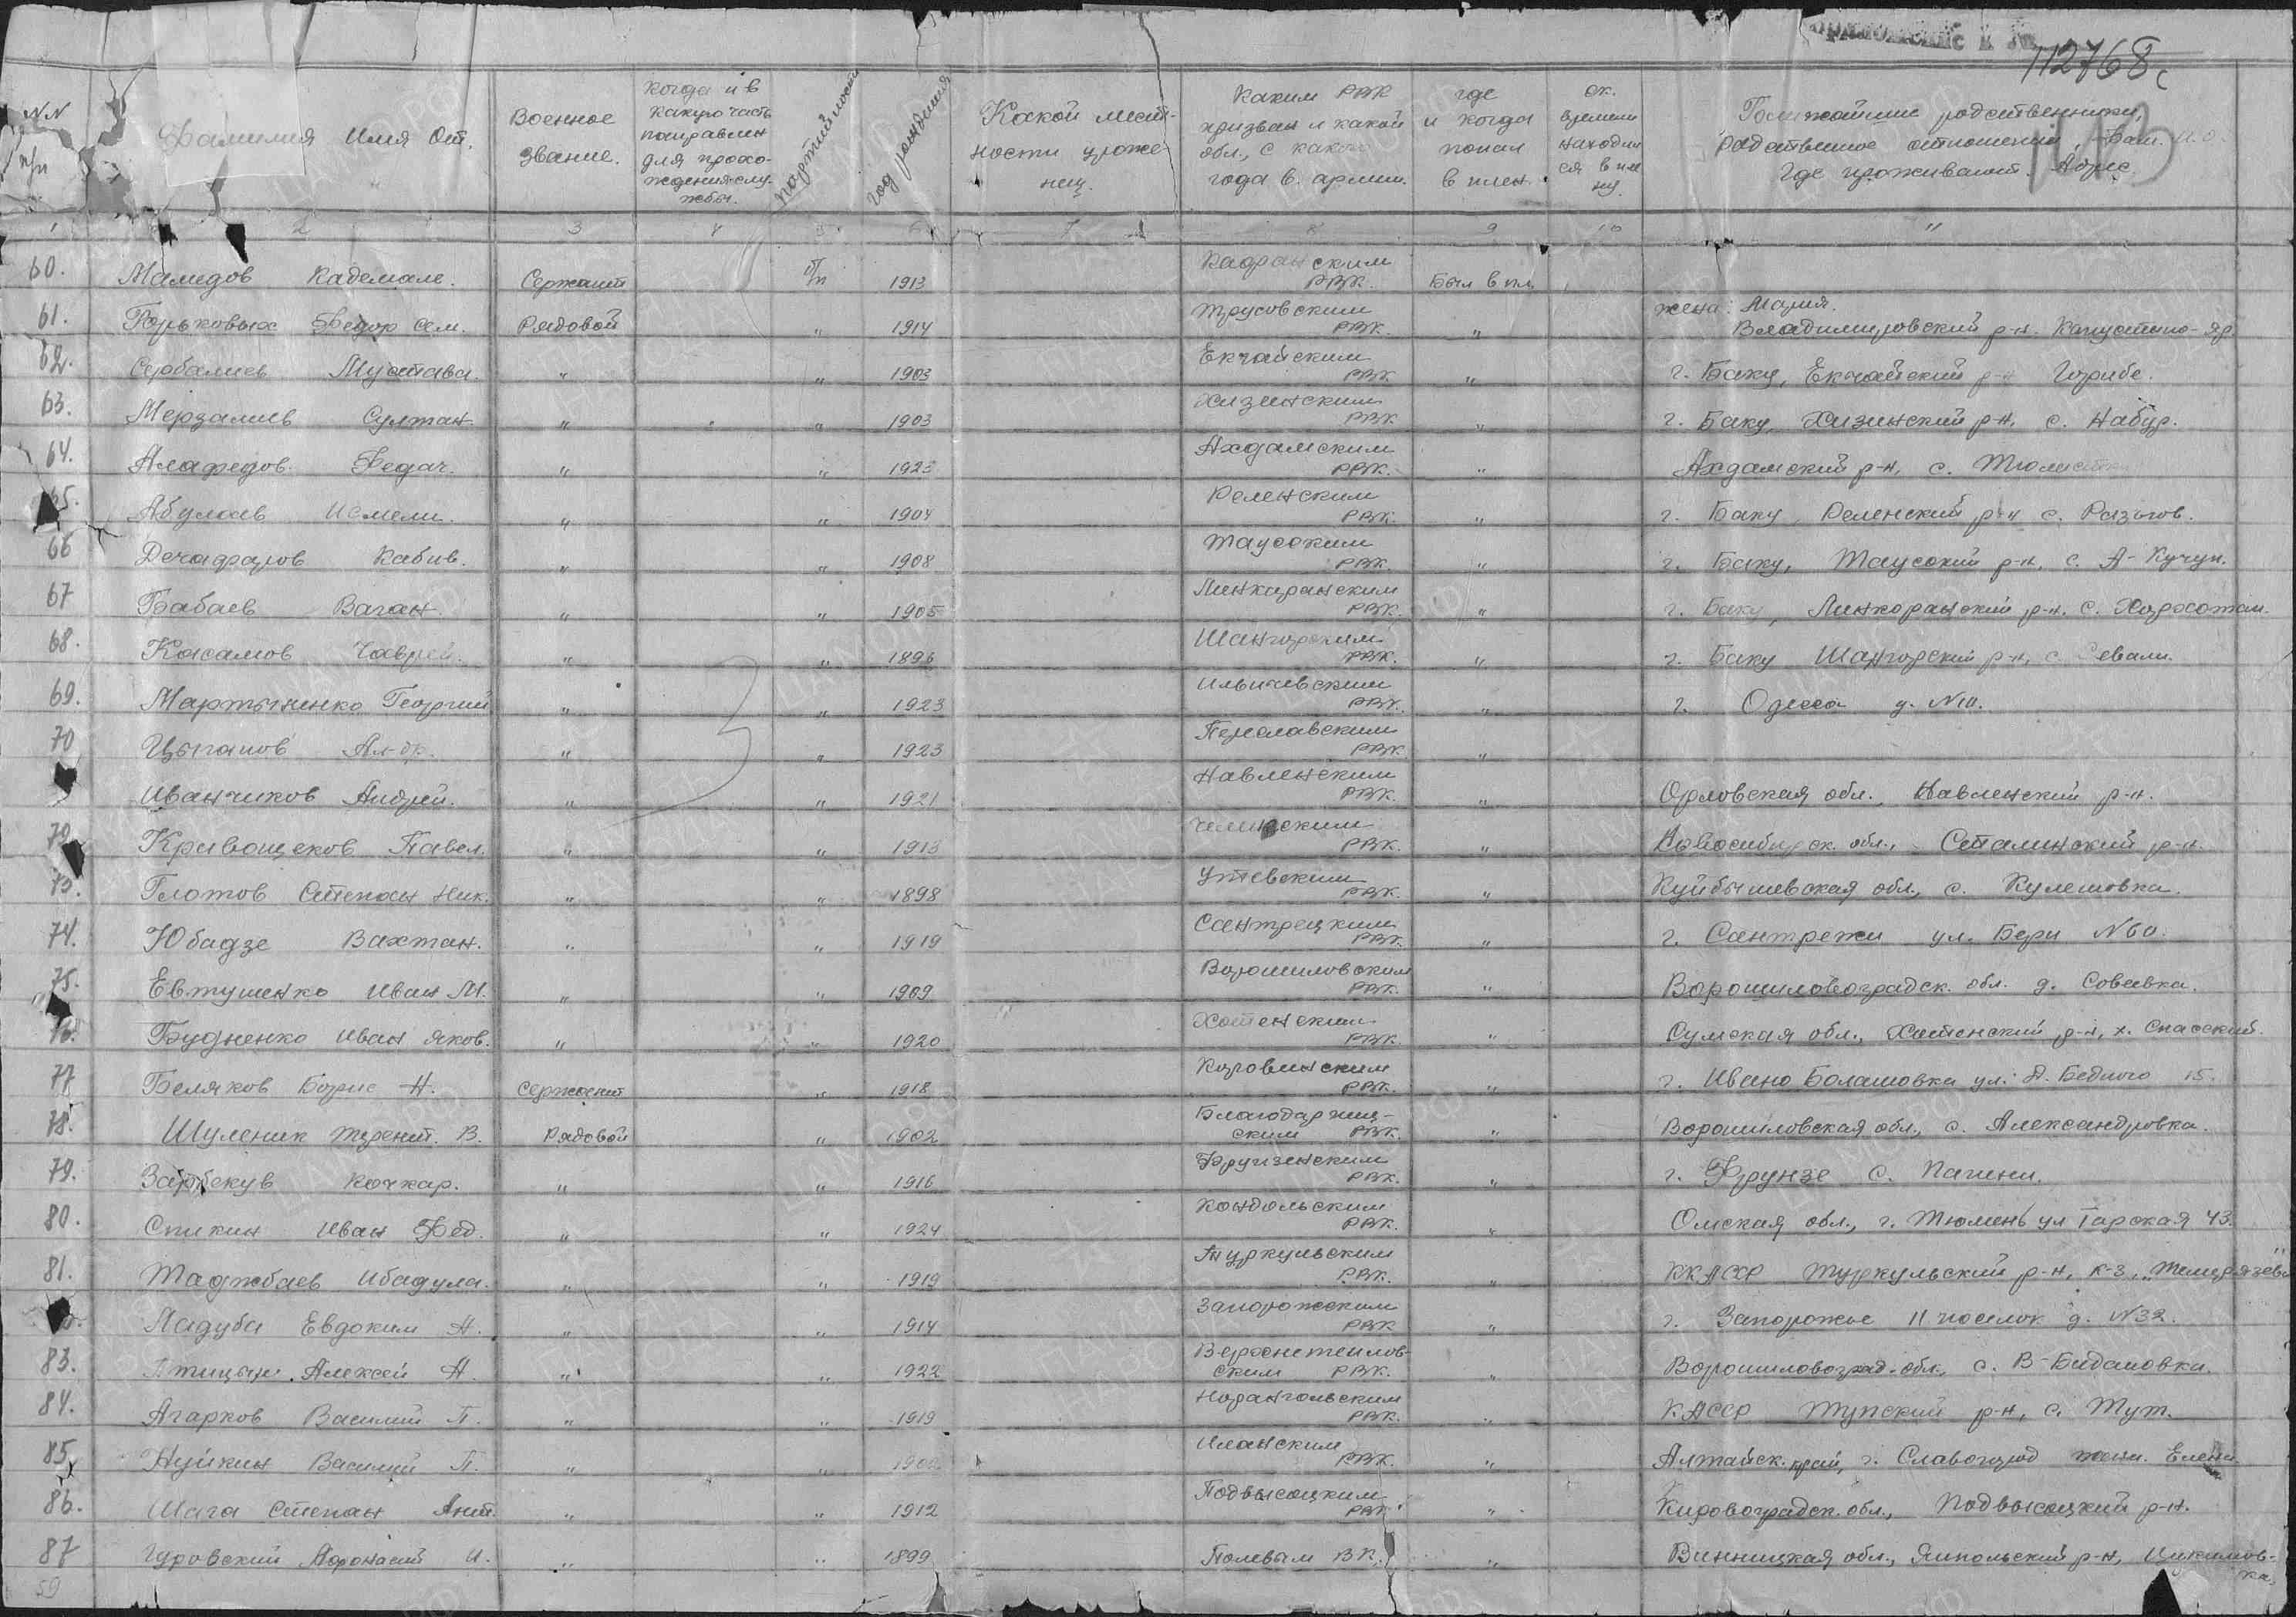 112768с
NN п/п
Фамилия Имя От.
Военное звание.
Когда и в какую часть направлен для прохождения службы.
партийность
год рождения
Какой местности уроженец.
Каким РВК призван и какой обл., с какого года в армии.
где и когда попал в плен.
ск. времени находился в плену.
Ближайшие родственники, родственное отношение, Фам. И.О. Где проживают. Адрес.
1 2 3 4 5 6 7 8 9 10 11
60. Мамедов Кадемале. Сержант б/п 1913 Кадранским РВК. Был в пл.
61. Горьковых Федор Сем. Рядовой " 1914 Трусовским РВК. " жена: Мария. Владимировский р-н. Капустино-Яр
62. Сербалиев Мустава. " " 1903 Екчайским РВК. " г. Баку, Екчайский р-н Гирибе.
63. Мерзалиев Султан " " 1903 Хизинским РВК. " г. Баку, Хизинский р-н, с. Набур.
64. Алафедов Федач. " " 1923 Ахдамским РВК. " Ахдамский р-н, с.
65. Абулаев Исмели. " " 1904 Реленским РВК. " г. Баку, Реленский р-н с. Разьгов.
66 Дечафаров Кабив. " " 1908 Таусским РВК. " г. Баку, Таусский р-н, с. А-Кучун.
67 Бабаев Ваган. " " 1905 Линкаранским РВК. " г. Баку, Линкоранский р-н. с.
68. Касамов " " 1896 Шангорским РВК. " г. Баку Шангорский р-н, с. Севали.
69. Мартыненко Георгий " " 1923 Ильичевским РВК. " г. Одесса д. N10.
70 Цыганов Ал-др. " " 1923 Переславским РВК. "
Иванчиков Андрей. " " 1921 Навленским РВК. " Орловская обл., Навленский р-н.
72. Кривощеков Павел. " " 1913 РВК. " Новосибирск. обл., Сталинский р-н.
73. Глотов Степан Ник. " " 1898 Утевским РВК. " Куйбышевская обл., с. Кулешовка.
74. Юбадзе Вахтан. " " 1919 Сантрецким РВК. " г. Сантрежи ул. Бери N60.
75. Евтушенко Иван М. " " 1909 Ворошиловским РВК. " Ворошиловоградск. обл. д. Совеевка.
76. Будненко Иван Яков. " " 1920 Хотенским РВК. " Сумская обл., Хотенский р-н, х. Спасский.
77 Беляков Борис Н. Сержант " 1918 Каровинским РВК. " г. Ивано Болашовка ул. Д. Бедного 15.
78. Шуленик Терент. В. Рядовой " 1902 Благодарненским РВК. " Ворошиловская обл., с. Александровка.
79. Зарбекув Кочкар. " " 1916 Фрунзенским РВК. " г. Фрунзе с. Пагини.
80. Спикин Иван Фед. " " 1924 Кондольским РВК. " Омская обл., г. Тюмень ул Тарская 43.
81. Таджбаев Ибадула. " " 1919 Туркульским РВК. " ККАССР Туркульский р-н, к-з. "Темирязева"
Ладуба Евдоким А. " " 1914 Запорожским РВК " г. Запорожье 11 поселок д. N32.
83. Птицын Алексей А. " " 1922 РВК. " Ворошиловоград. обл., с. В-Бидановка.
84. Агарков Василий П. " " 1919 РВК. " КАССР Тупский р-н, с. Тут.
85. Нуйкин Василий П. " " Иланским РВК. " Алтайск. край, г. Славогород жена. Елена
86. Шага Степан Ант. " " 1912 Подвысоцким РВК. " Кировоградск. обл., Подвысоцкий р-н.
87 Гуровский Афонасий И. " " 1899 Полевым ВК. " Винницкая обл., Ямпольский р-н,
59